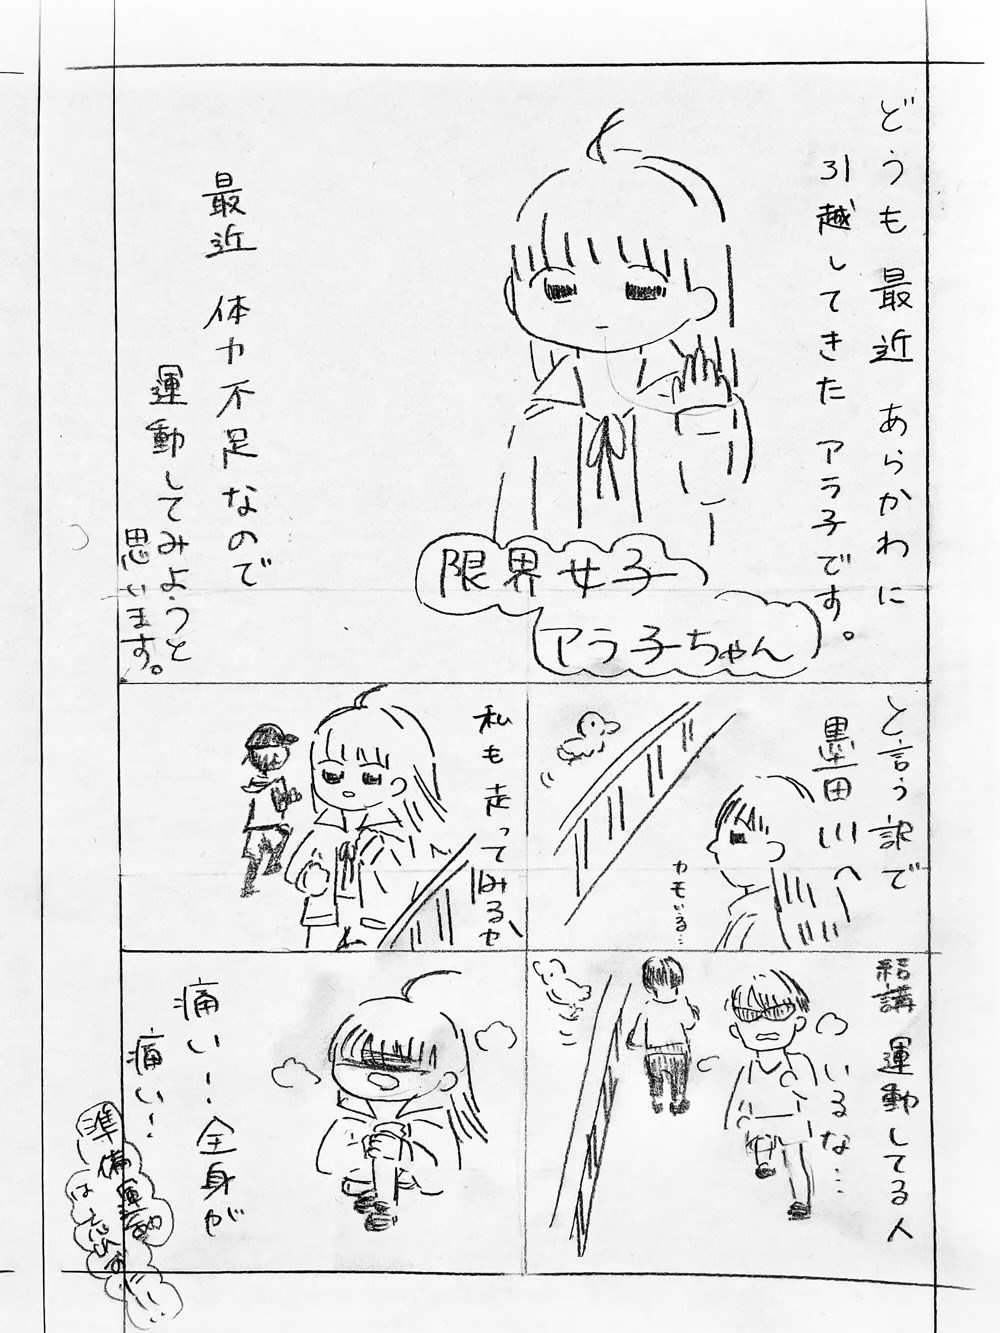 どうも 最近 あらかわに
引越してきた アラ子です。
限界女子
アラ子ちゃん
最近 体力不足なので
運動してみようと
思います。
と言う訳で
墨田川へ
カモいる…
結講 運動してる人
いるな…
私も 走ってみるか
痛い! 全身が
痛い!
準備運動
は